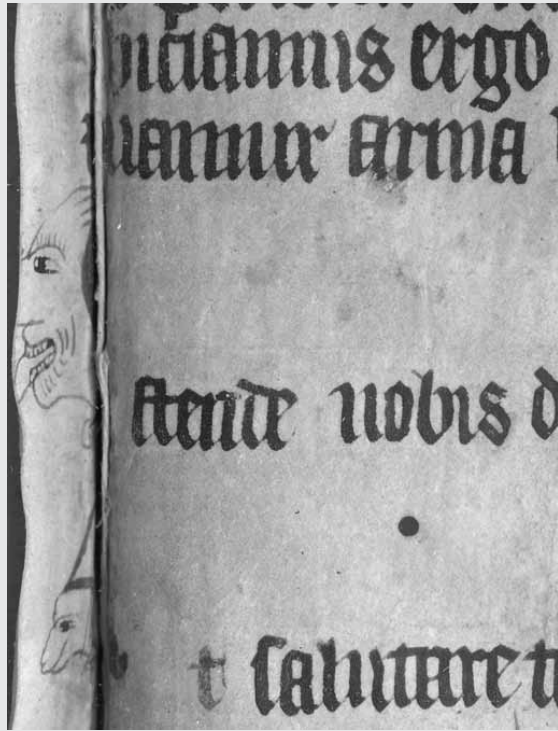 biciamus ergo
uamur arma
stende nobis d
t salutare t